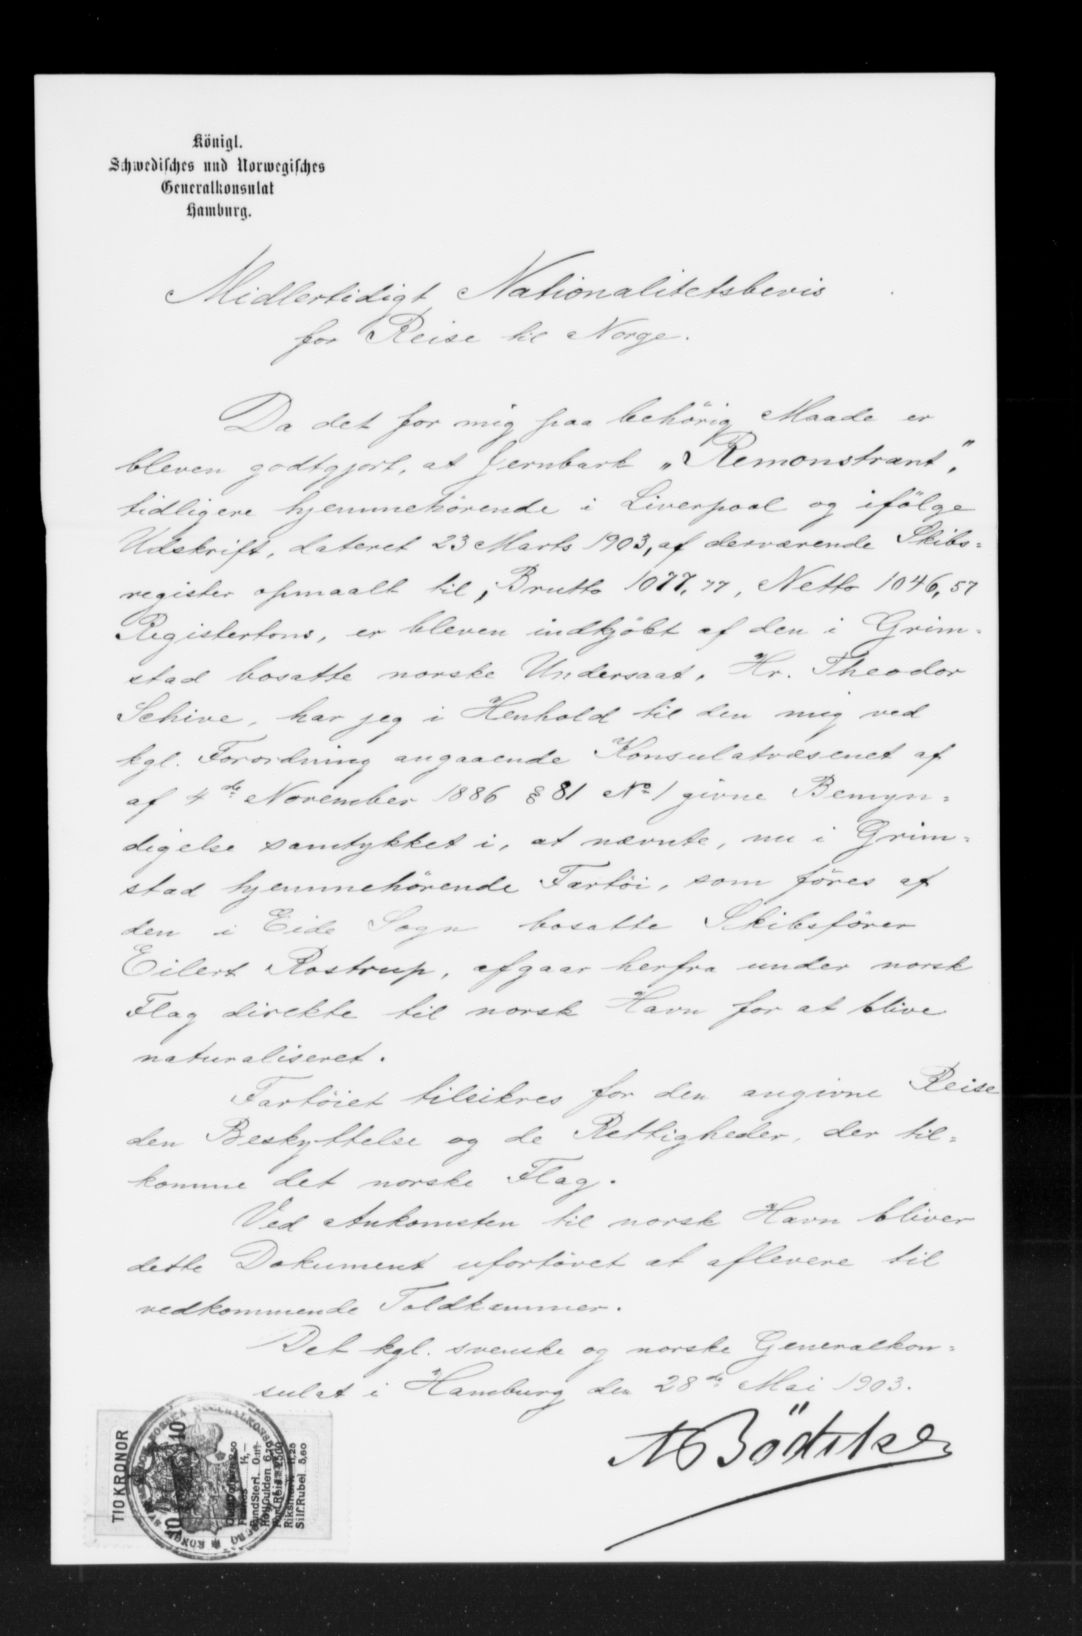 Königl.
Schwedisches und Norwegisches
Generalkonsulat
Hamburg.
Midlertidigt Nationalitetsbevis
for Reise til Norge.
Da det for mig paa behörig Maade er
bleven godtgjort, at Jernbark „Remonstrant",
tidligere hjemmehörende i Liverpool og ifölge
Udskrift, dateret 23 Marts 1903, af derværende Skibs=
register opmaalt til, Brutto 1077,77, Netto 1046,57
Registertons, er bleven indkjöbt af den i Grim=
stad bosatte norske Undersaat, Hr. Theodor
Schive, har jeg i Henhold til den mig ved
kgl. Forordning angaaende Konsulatvæsenet af
af 4de November 1886 § 81 No 1 givne Bemyn=
digelse samtykket i, at nævnte, nu i Grim=
stad hjemmehörende Fartöi, som föres af
den i Eide Sogn bosatte Skibsförer
Eilert Rostrup, afgaar herfra under norsk
Flag direkte til norsk Havn for at blive
naturaliseret.
Fartöiet tilsikres for den angivne Reise
den Beskyttelse og de Rettigheder, der til=
komme det norske Flag.
Ved Ankomsten til norsk Havn bliver
dette Dokument ufortövet at aflevere til
vedkommende Toldkammer.
Det kgl. svenske og norske Generalkon=
sulat i Hamburg den 28de Mai 1903.
TIO KRONOR
10
10
Rubel 5,60